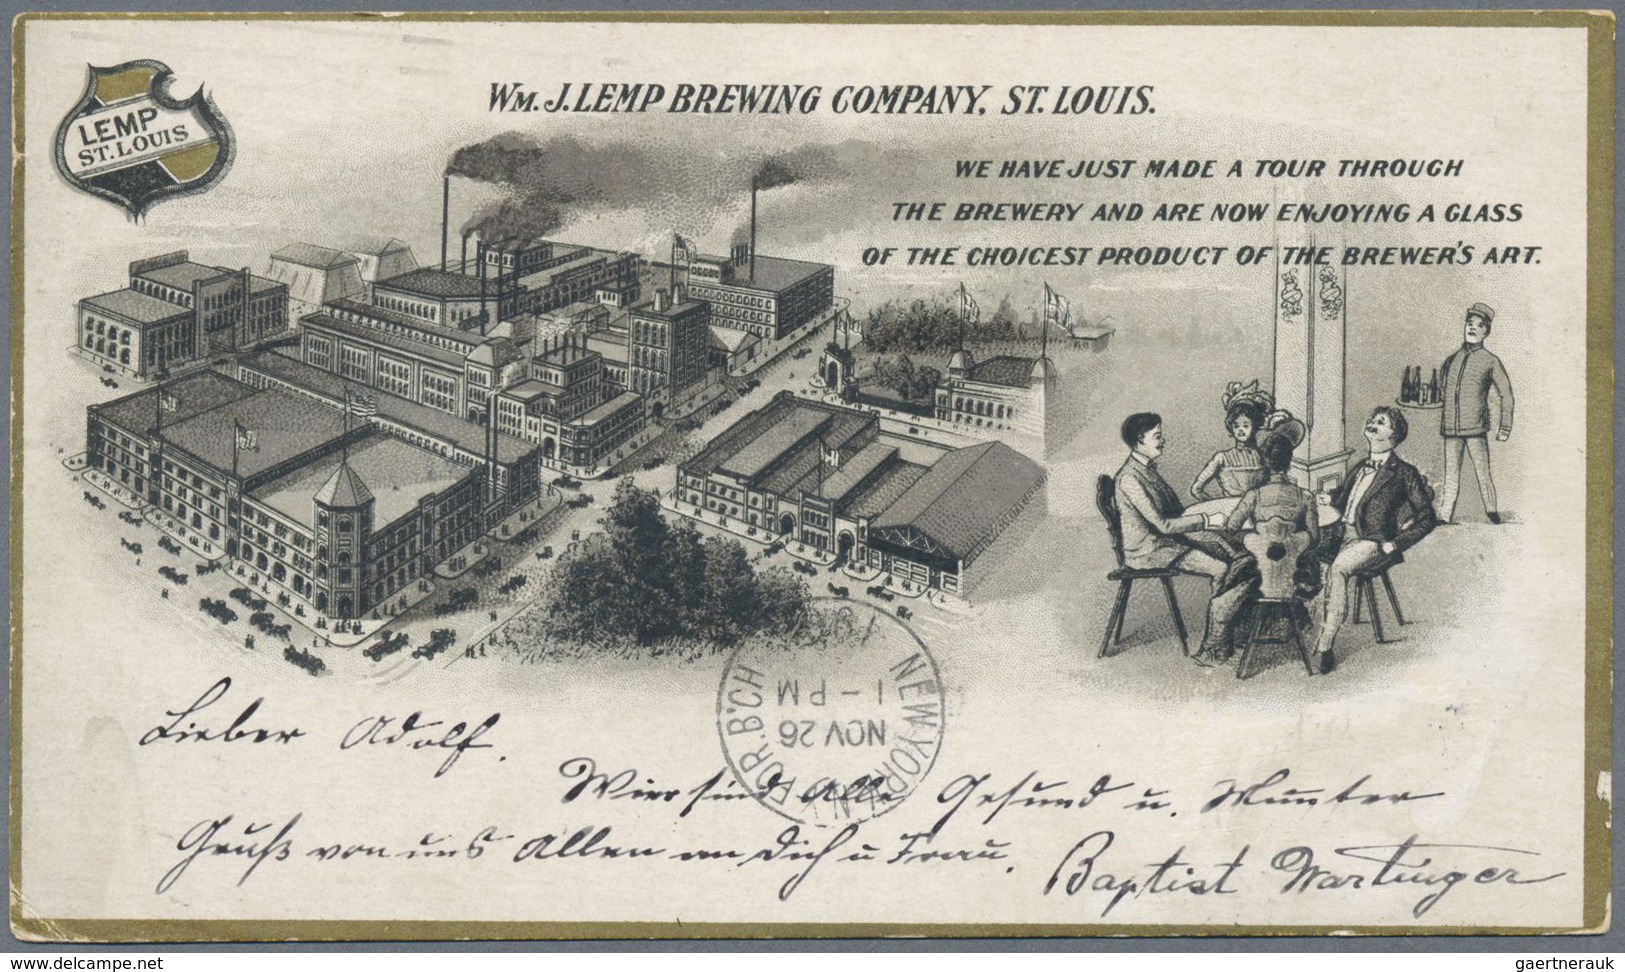 LEMP
ST. LOUIS
WM. J. LEMP BREWING COMPANY, ST. LOUIS.
WE HAVE JUST MADE A TOUR THROUGH
THE BREWERY AND ARE NOW ENJOYING A GLASS
OF THE CHOICEST PRODUCT OF THE BREWER'S ART.
NEW YORK, N.Y. FOR. B'CH
NOV 26
1 - PM
Lieber Adolf.
Wier sind Alle Gesund u. Munter
Gruß von uns Allen an Dich u Frau.
Baptist Wartinger
www.delcampe.net
gaertnerauk